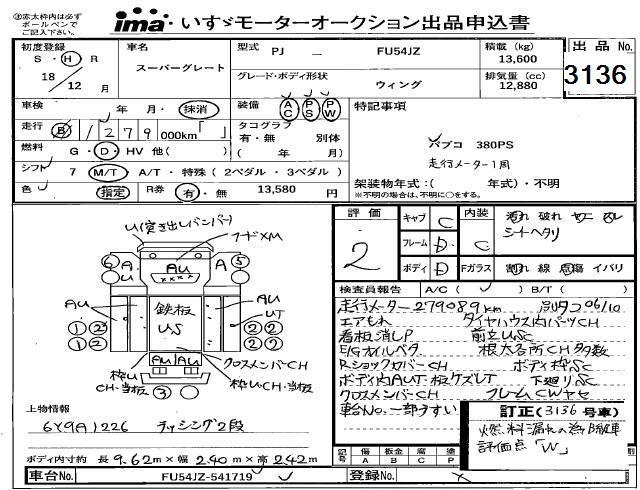 ㊟赤太枠内は必ず
ボールペンで
ご記入下さい。
ima・いすゞモーターオークション出品申込書
初度登録
S・H・R
18/12月
車名
スーパーグレート
型式 PJ － FU54JZ
積載 (kg)
13,600
出品No.
3136
グレード・ボディ形状
ウィング
排気量 (cc)
12,880
車検 年 月・抹消
装備 AC PS PW
特記事項
走行 B / 279 000km「 」
タコグラフ
有・無 別体
( 年 月)
パブコ 380PS
走行メーター1周
燃料 G・D・HV 他( )
シフト 7 M/T・A/T・特殊(2ペダル・3ペダル)
架装物年式:( 年式)・不明
※不明の場合は、不明に○をする。
色 指定 R券 有・無 13,580円
評価
2
キャブ C
フレーム D
ボディ D
内装 C
汚れ 破れ
シートヘタリ
Fガラス 割れ 線 飛傷 イバリ
U(突き出しバンパー)
フードXM
6 A A 5
AU
××××
AU
鉄板
US
AU
UT
1 2 2 2
1 2 2 2
AU AU
クロスメンバーCH
枠U
CH・当板
枠U・CH・当板
3
検査員報告 A/C( ) B/T( )
走行メーター279089km 06/10
エアもれ タイヤハウス内パーツCH
看板消しP 前立USC
E/Gオイルベタ 根太各所CH多数
R.ショックカバーCH ボディ枠SC
ボディ内AUT・板ケズレT 下廻りSC
クロスメンバーCH フレームCWヤセ
車台No.一部うすい
訂正(3136号車)
燃料漏れの為
評価点「W」
上物情報
6Y9A1226 チッシング2段
ボディ内寸約 長 9.62m× 幅 2.40m× 高 2.42m
記号 傷 A 板金 B 腐 C 塗 P
車台No. FU54JZ-541719
登録No.